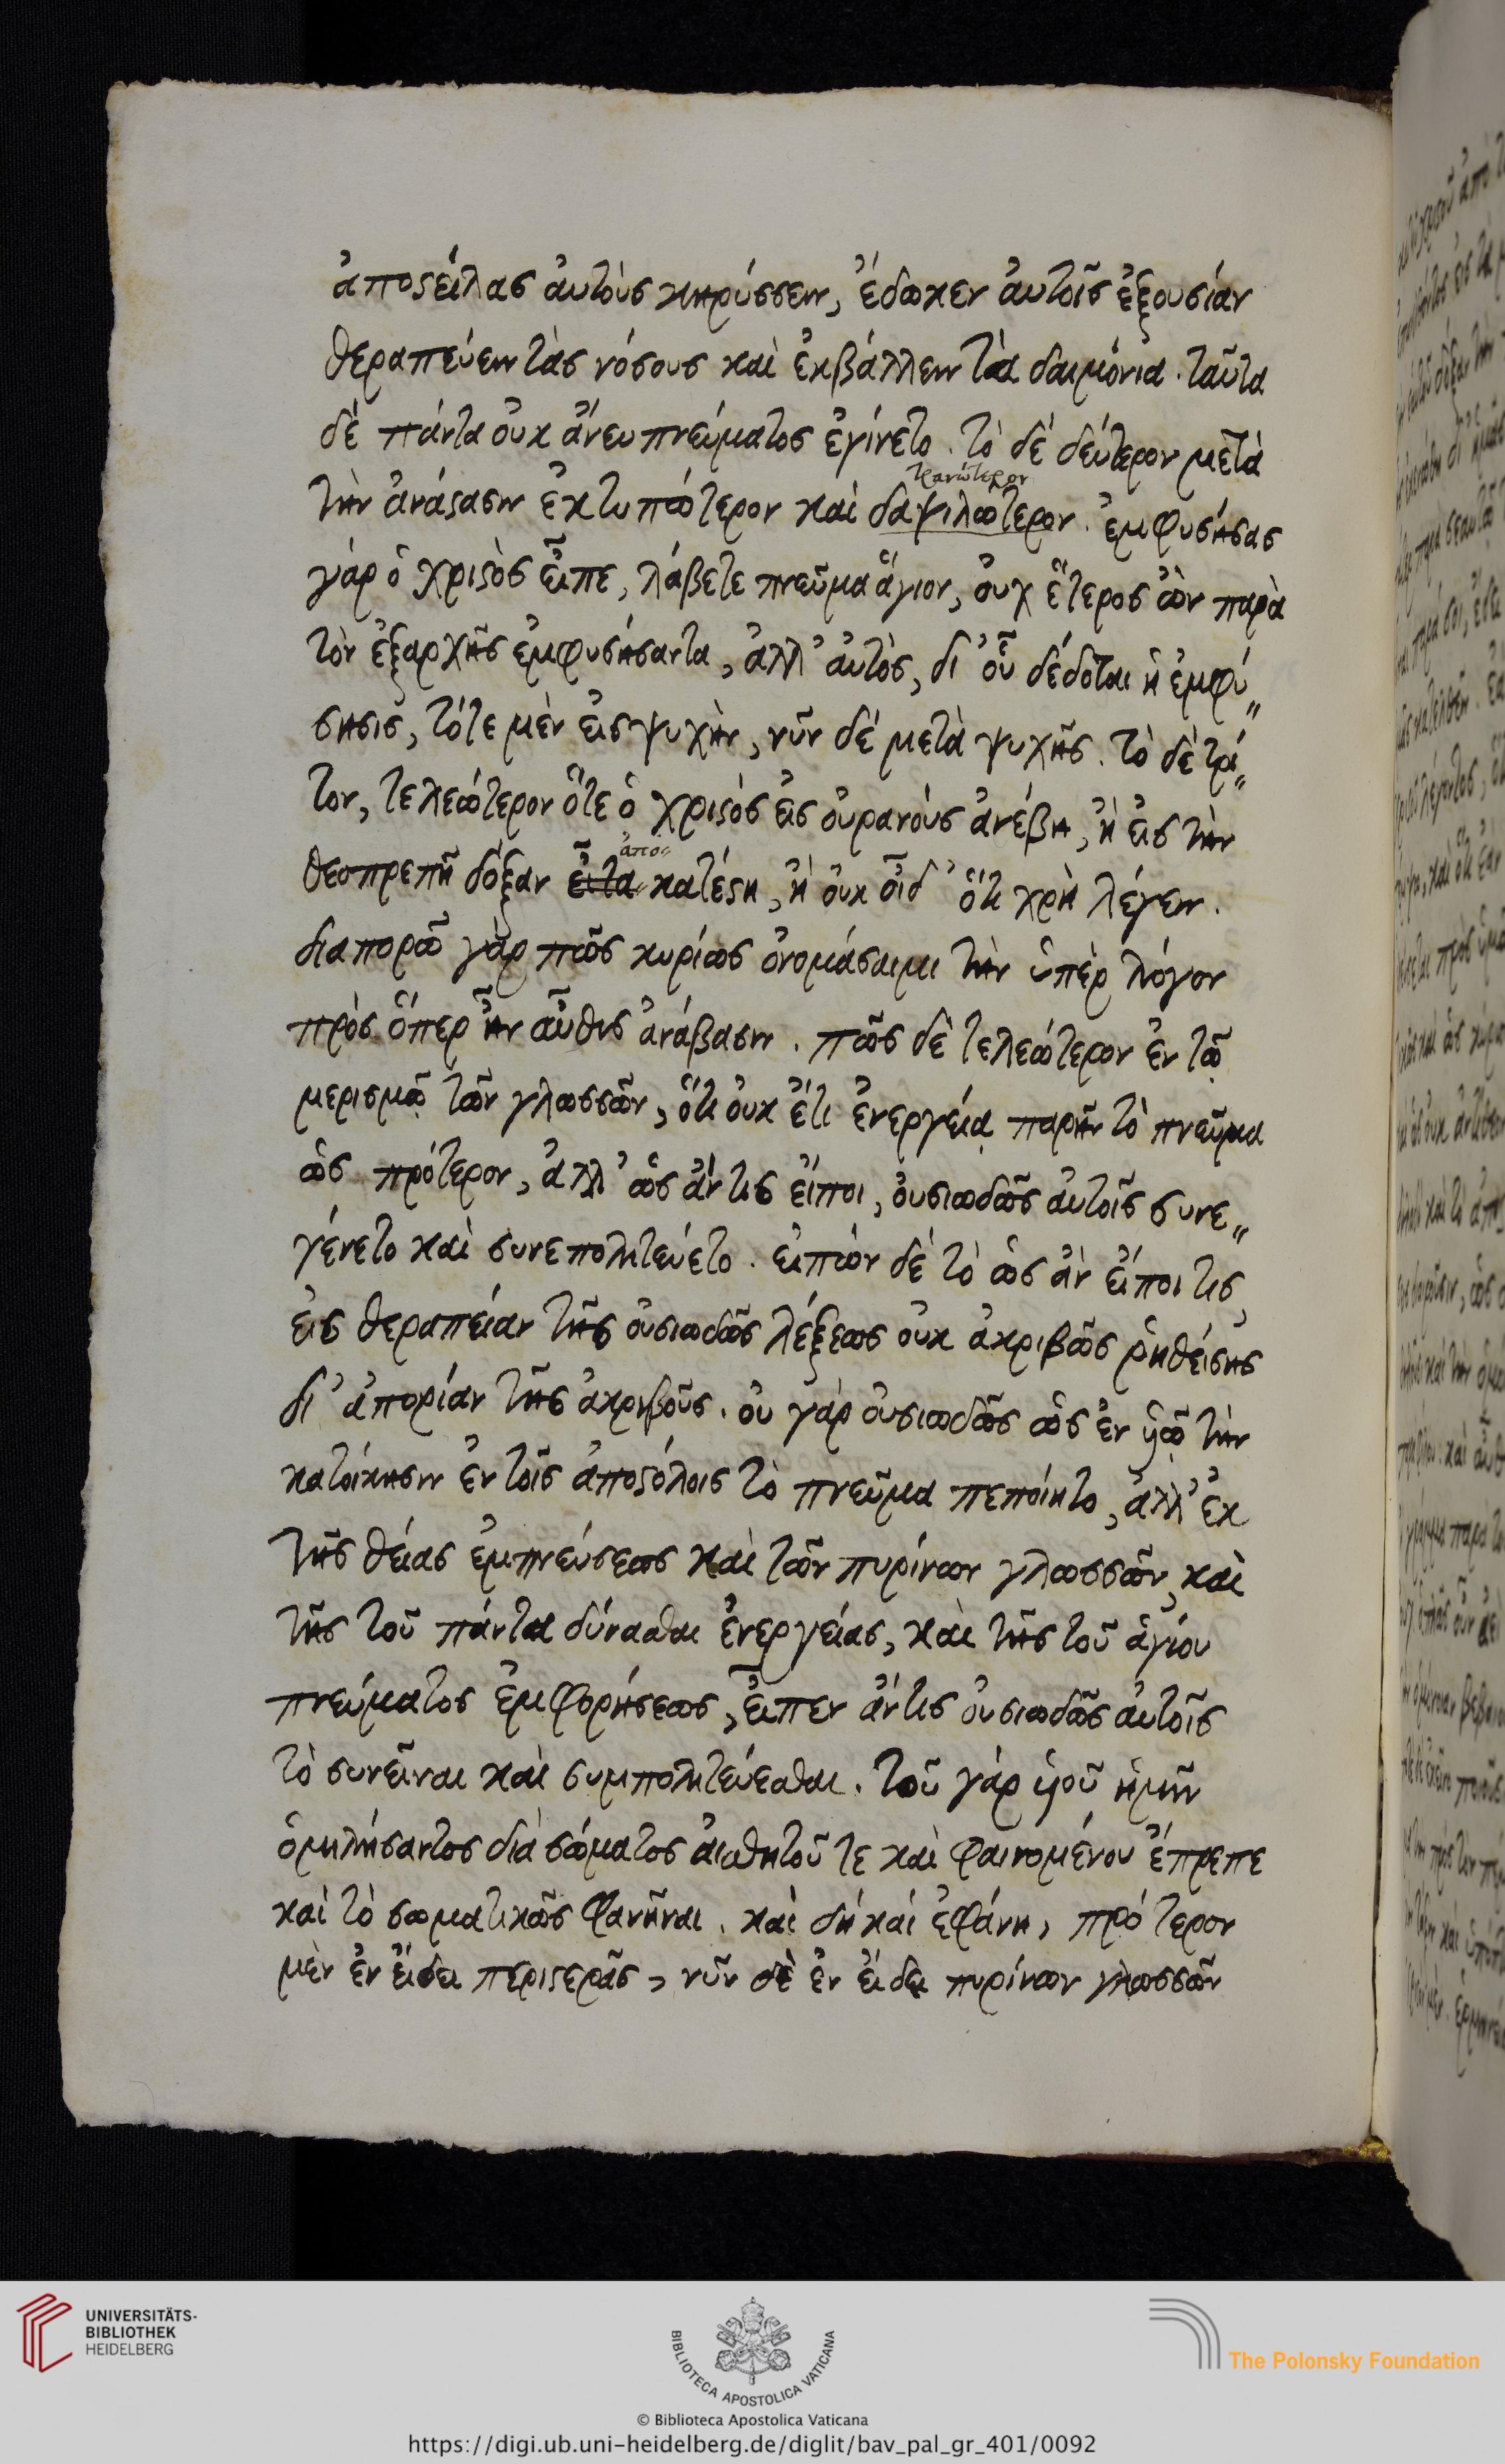 ἀποστείλας ἀυτοὺς κηρύσσειν, ἔδωκεν ἀυτοῖς ἐξουσίαν
θεραπεύειν τὰς νόσους καὶ ἐκβάλλειν τὰ δαιμόνια. ταῦτα
δὲ πάντα ὀυκ ἄνευ πνεύματος ἐγίνετο. τὸ δὲ δεύτερον μετὰ
τρανώτερον
τὴν ἀνάστασιν ἐκτυπώτερον καὶ δαψιλώτερον. ἐμφυσήσας
γάρ ὁ χριστὸς εἶπε, λάβετε πνεῦμα ἅγιον, ὀυχ ἕτερος ὢν παρὰ
τὸν ἐξαρχῆς ἐμφυσήσαντα, ἀλλ' ἀυτὸς, δι' οὗ δέδοται ἡ ἐμφύ〃
σησις, τότε μὲν εἰς ψυχὴν, νῦν δὲ μετὰ ψυχῆς. τὸ δὲ τρί〃
τον, τελεώτερον ὅτε ὁ χριστὸς εἰς ὀυρανοὺς ἀνέβη, ἢ εἰς τὴν
ἀπο
θεοπρεπῆ δόξαν εἶτα κατέστη, ἢ ὀυκ οἶδ' ὅτι χρὴ λέγειν.
διαπορῶ γὰρ πῶς κυρίως ὀνομάσαιμι τὴν ὑπὲρ λόγον
πρὸς ὅπερ ἦν αὖθις ἀνάβασιν. πῶς δὲ τελεώτερον ἐν τῷ
μερισμῷ τῶν γλωσσῶν, ὅτι ὀυκ ἔτι ἐνεργείᾳ παρῆν τὸ πνεῦμα
ὡς πρότερον, ἀλλ' ὡς ἄν τις εἴποι, ὀυσιωδῶς ἀυτοῖς συνε〃
γένετο καὶ συνεπολιτεύετο. εἰπὼν δὲ τὸ ὡς ἂν εἴποι τις,
εἰς θεραπείαν τῆς ὀυσιωδῶς λέξεως ὀυκ ἀκριβῶς ῥηθείσης
δι' ἀπορίαν τῆς ἀκριβοῦς. ὀυ γὰρ ὀυσιωδῶς ὡς ἐν ὑῷ τὴν
κατοίκησιν ἐν τοῖς ἀποστόλοις τὸ πνεῦμα πεποίητο, ἀλλ' ἐκ
τῆς θείας ἐμπνεύσεως καὶ τῶν πυρίνων γλωσσῶν, καὶ
τῆς τοῦ πάντα δύνασθαι ἐνεργείας, καὶ τῆς τοῦ ἁγίου
πνεύματος ἐμφορήσεως, εἶπεν ἄν τις ὀυσιωδῶς ἀυτοῖς
τὸ συνεῖναι καὶ συμπολιτεύεσθαι. τοῦ γάρ ὑοῦ ἡμῖν
ὁμιλήσαντος διὰ σώματος ἀισθητοῦ τε καὶ φαινομένου ἔπρεπε
καὶ τὸ σωματικῶς φανῆναι. καὶ δὴ καὶ ἐφάνη, πρότερον
μὲν ἐν εἴδει περιστερᾶς, νῦν δὲ ἐν εἴδει πυρίνων γλωσσῶν
UNIVERSITÄTS-
BIBLIOTHEK
HEIDELBERG
BIBLIOTECA APOSTOLICA VATICANA
The Polonsky Foundation
© Biblioteca Apostolica Vaticana
https://digi.ub.uni-heidelberg.de/diglit/bav_pal_gr_401/0092